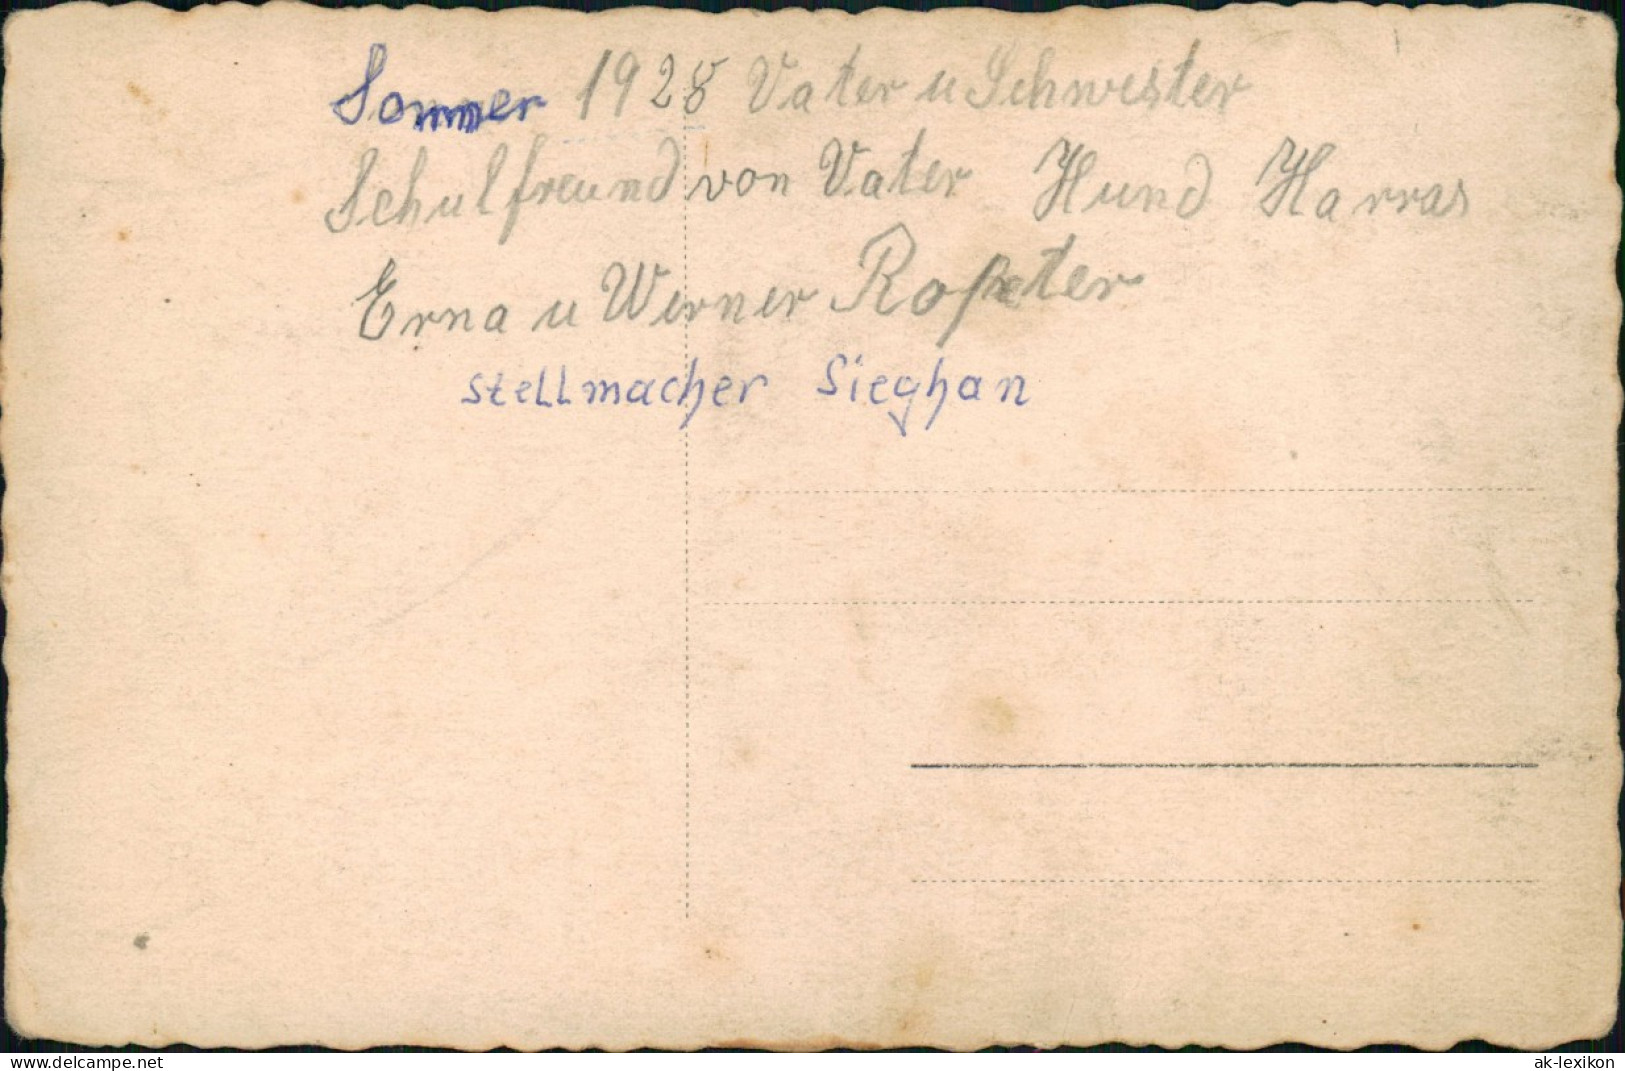 Sommer 1928 Vater u Schwester
Schulfreund von Vater Hund Harras
Erna u Werner
stellmacher Sieghan
www.delcampe.net
ak-lexikon